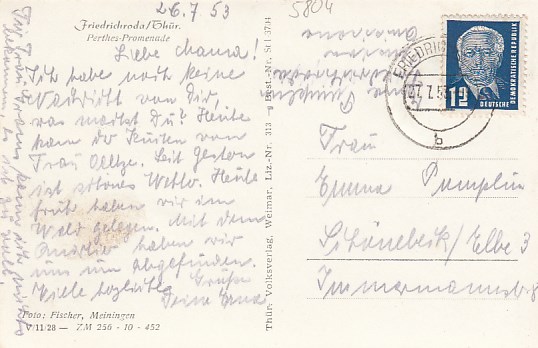 26.7.53
5804
Friedrichroda/Thür.
Perthes-Promenade
Liebe Mama!
Ich habe noch keine
Nachricht von Dir,
was machst Du? Heute
kam der Kuchen von
Frau Oeltze. Seit gestern
ist schönes Wetter. Heute
früh haben wir im
Wald gelegen. Mit dem
Quartier haben wir
uns nun abgefunden.
Viele herzliche Grüße
Deine Erna
Foto: Fischer, Meiningen
V/11/28 — 7M 256 - 10 - 452
Thür. Volksverlag, Weimar, Liz.-Nr. 313 — Best.-Nr. St 1 3734
FRIEDRICH
27.7.53
b
12
DEUTSCHE
DEUTSCHE DEMOKRATISCHE REPUBLIK
Frau
Emma Pumplün
Schönebeck/Elbe 3
Immermannstr. 8